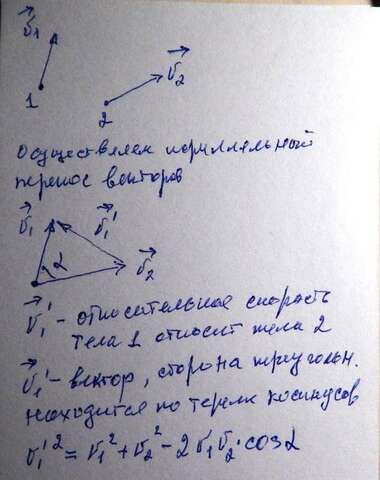 v⃗₁
v⃗₂
1
2
Осуществляем параллельный
перенос векторов
v⃗₁ v⃗₁'
α
v⃗₂
v⃗₁' - относительная скорость
тела 1 относит тела 2
v⃗₁' - вектор, сторона треугольн.
находится по терем косинусов
v₁'² = v₁² + v₂² - 2v₁v₂·cosα